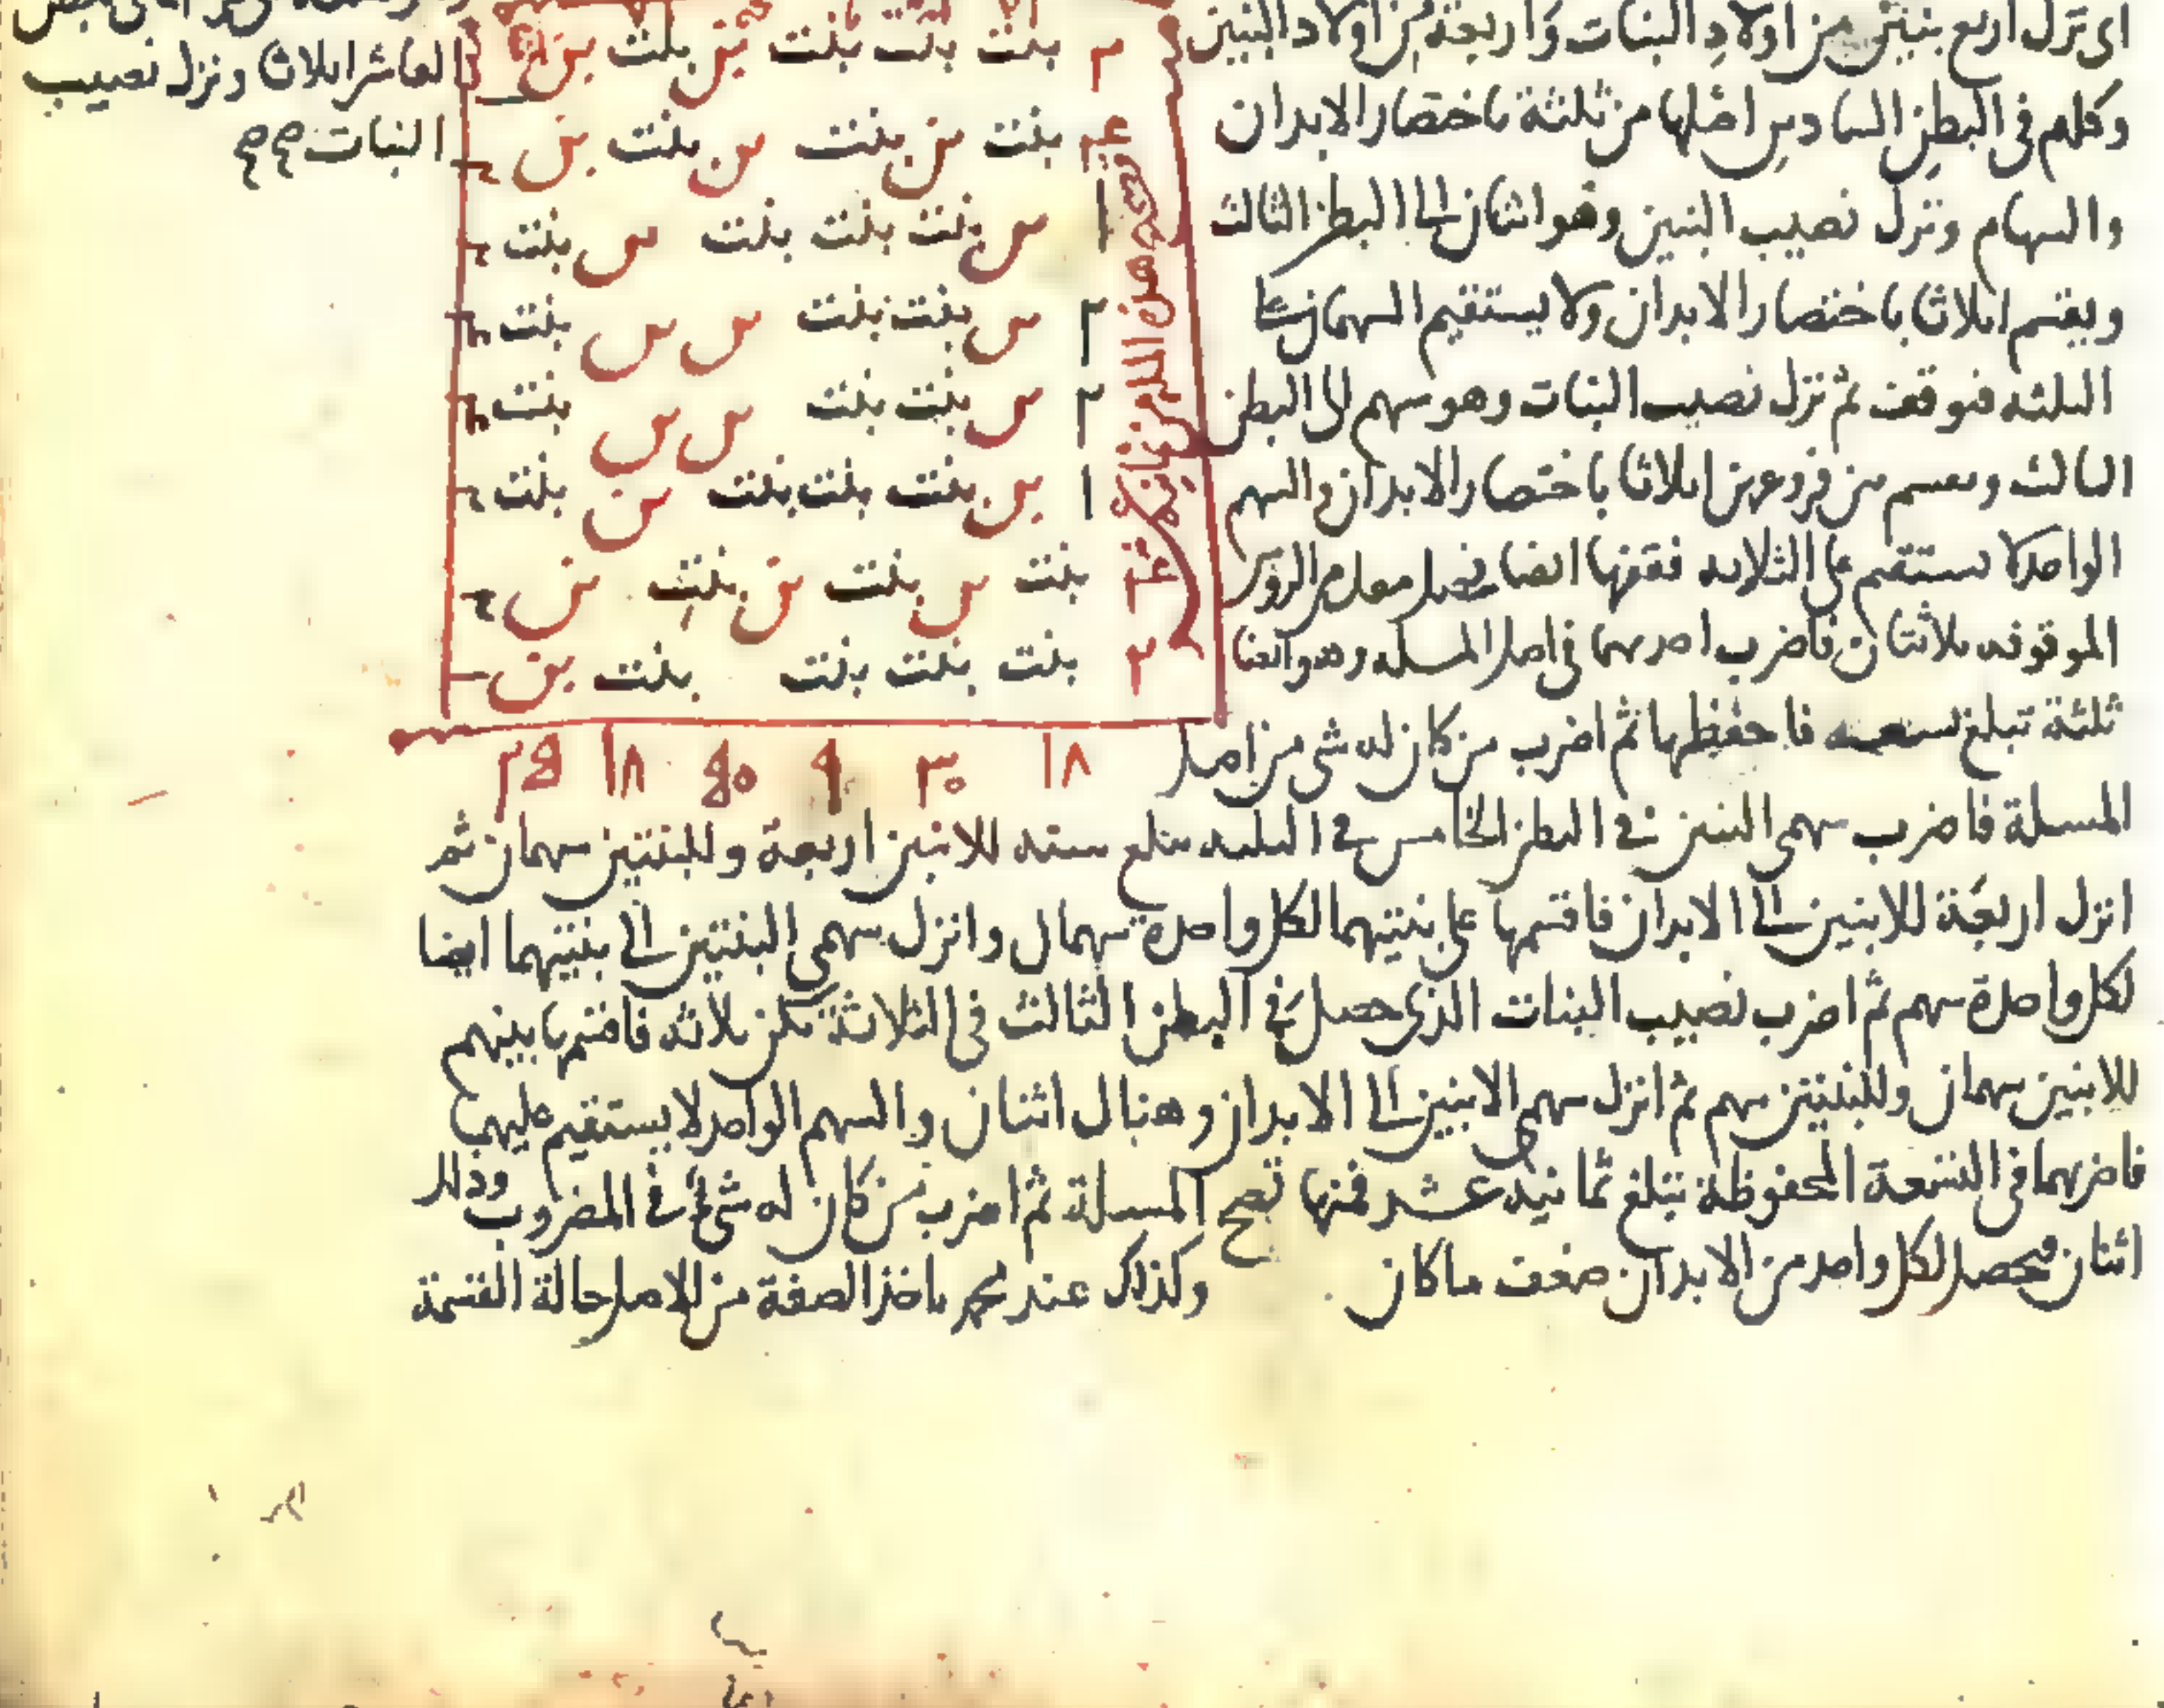 اى نزل اربع بنتين من اولاد البنات واربعة من اولاد البنين
وكلهم فى البطن السادس اصلها من ثلثة باختصار الابدان
والسهام ونزل نصيب البنين وهو اثنان الى البطن الثالث
ويقسم اثلاثا باختصار الابدان ولا يستقيم السهمان على
الثلثه فتوقف ثم نزل نصيب البنات وهو سهم الى البطن
الثالث ويقسم بين فروعهن اثلاثا باختصار الابدان والسهم
الواحد لا يستقيم على الثلاثه فقفها ايضا فحصل معك من الرؤس
الموقوفه ثلاثتان فاضرب احديهما فى اصل المسئله وهو ايضا
ثلثة تبلغ تسعه فاحفظها ثم اضرب من كان له شى من اصل
المسئلة فاضرب سهمى البنين فى البطن الخامس فى الثلثه تبلغ سته للابنين اربعة وللبنتين سهمان ثم
انزل اربعة للابنين الى الابدان فاقسمها على بنتيهما لكل واحدة سهمان وانزل سهمى البنتين الى بنتيهما ايضا
لكل واحدة سهم ثم اضرب نصيب البنات الذى حصل فى البطن الثالث فى الثلاثة يكن ثلاثه فاقسمها بينهم
للابنين سهمان وللبنتين سهم ثم انزل سهمى الابنين الى الابدان وهناك اثنان والسهم الواحد لا يستقيم عليهما
فاضربهما فى التسعة المحفوظة تبلغ ثمانية عشر فمنها تصح المسئلة ثم اضرب من كان له شئ فى المضروب وذلك
اثنان فيحصل لكل واحد من الابدان ضعف ما كان
وكذلك عند محمد ياخذ الصفة من الاصل حالة القسمة
العاشر اثلاثا ونزل نصيب
البنات
٢ بنت بنت بنت بن بنت بن
بنت بن بنت بن بنت بن
١ بن بنت بنت بنت بن بنت
٢ بن بنت بنت بن بن بنت
٢ بن بنت بنت بن بن بنت
١ بن بنت بنت بنت بن بنت
بنت بن بنت بن بنت بن
٢ بنت بنت بنت بنت بن
١٨ ٣٠ ٩ ١٨